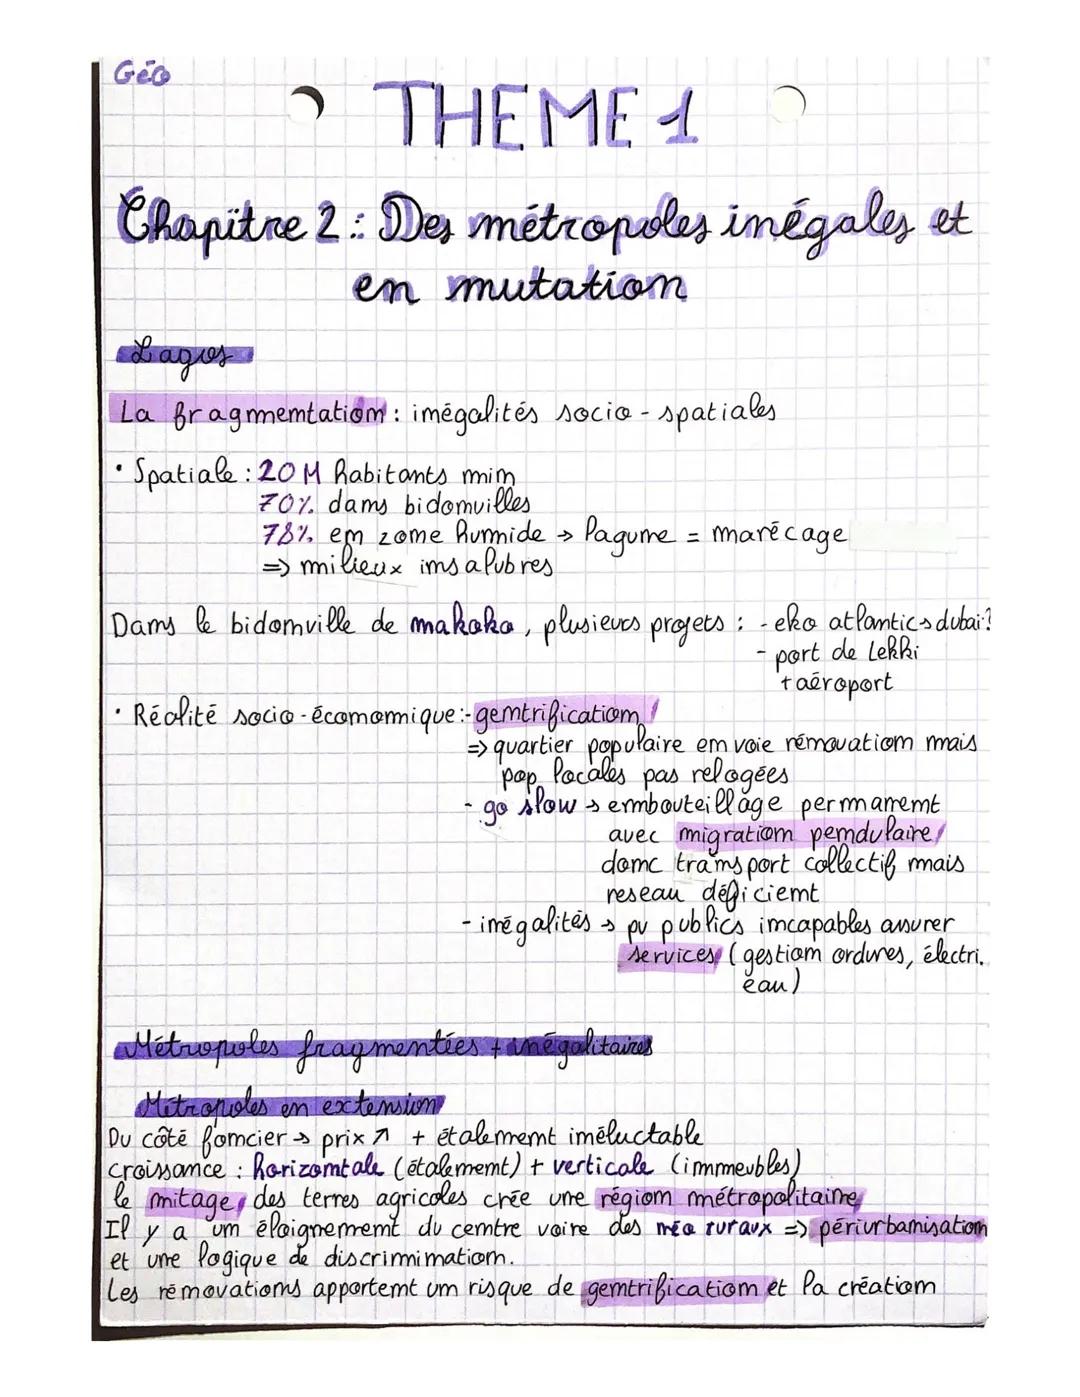 Géo
THEME 1
Chapître 2 : Des métropoles inégales et
en mutation
Lagos
La fragmentation : inégalités socio-spatiales
• Spatiale : 20 M habitants min
70% dans bidonvilles
78% en zone humide → lagune = marécage
=> milieux insalubres
Dans le bidonville de makoko, plusieurs projets : - eko atlantic → dubai?
- port de Lekki
+ aéroport
• Réalité socio-économique : - gentrification
=> quartier populaire en voie rénovation mais
pop locales pas relogées
- go slow → embouteillage permanent
avec migration pendulaire
donc transport collectif mais
reseau déficient
- inégalités → pv publics incapables assurer
services (gestion ordures, électri.
eau)
Métropoles fragmentées + inégalitaires
Métropoles en extension
Du côté foncier → prix ↗ + étalement inéluctable
croissance : horizontale (étalement) + verticale (immeubles)
le mitage des terres agricoles crée une région métropolitaine
Il y a un éloignement du centre voire des néo ruraux => périurbanisation
et une logique de discrimination.
Les rénovations apportent un risque de gentrification et la création